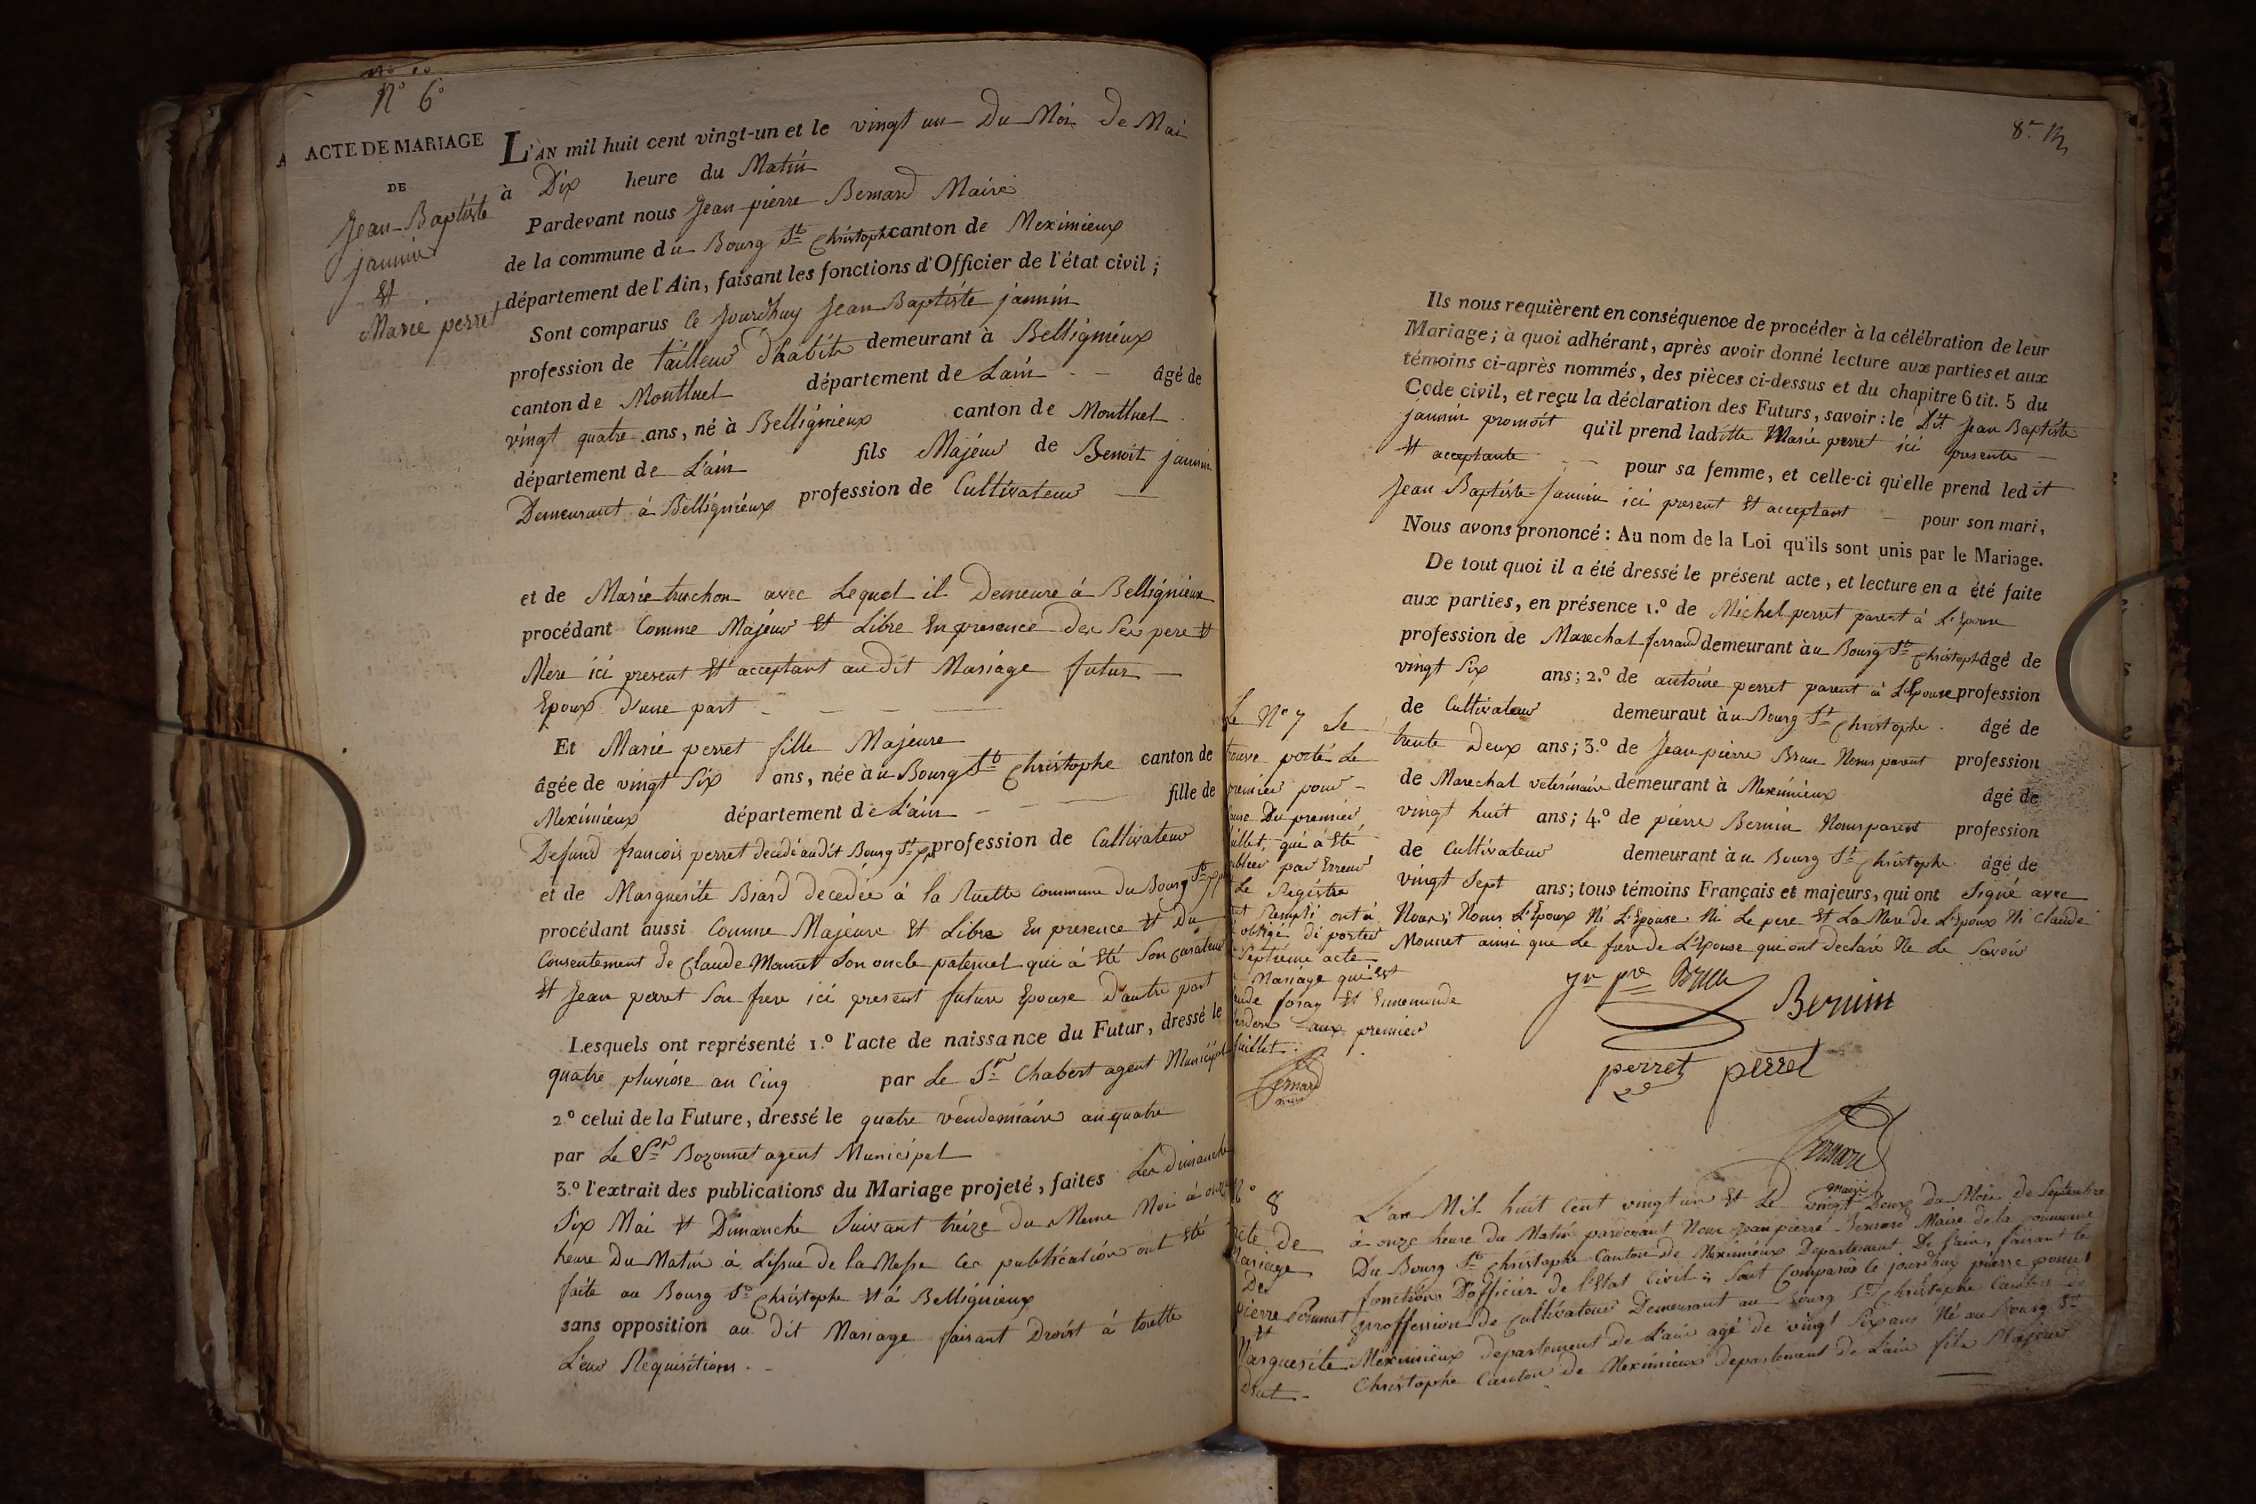 N° 6°
ACTE DE MARIAGE
DE
Jean-Baptiste
jannin
Et
Marie perret
L'AN mil huit cent vingt-un et le vingt un Du Moi De Mai
à Dix heure du Matin
Pardevant nous Jean pierre Bernard Maire
de la commune du Bourg St Christophe canton de Meximieux
département de l'Ain, faisant les fonctions d'Officier de l'état civil;
Sont comparus Ce Jourdhuy Jean Baptiste jannin
profession de tailleur D'habits demeurant à Bellignieux
canton de Montluel département de Lain âgé de
vingt quatre ans, né à Bellignieux canton de Montluel
département de L'ain fils Majeur de Benoit jannin
Demeurant à Bellignieux profession de Cultivateur
et de Marie truchon avec Lequel il Demeure à Bellignieux
procédant Comme Majeur Et Libre En presence Des Ses pere Et
Mere ici present Et acceptant au dit Mariage futur
Epoux D'une part
Et Marie perret fille Majeure
âgée de vingt Six ans, née àu Bourg St Christophe canton de
Meximieux département de L'ain fille de
Defund francois perret decedé au dit Bourg St profession de Cultivateur
et de Marguerite Biard decedée à la Ruette Commune du Bourg St
procédant aussi Comme Majeure Et Libre En presence Et Du
Consentement De Claude Monnet Son oncle paternel qui à Eté Son Curateur
Et Jean perret Son frere ici present future Epouse D'autre part
Lesquels ont représenté 1.° l'acte de naissance du Futur, dressé le
quatre pluviose an Cinq par Le Sr Chabert agent Municipal
2.° celui de la Future, dressé le quatre vendemiaire an quatre
par Le Sr Bozonnet agent Municipal
3.° l'extrait des publications du Mariage projeté, faites Les Dimanche
Six Mai Et Dimanche Suivant treize du Meme Moi à onze
heure Du Matin à L'issue de la Messe Ces publication ont Eté
faite au Bourg St Christophe Et à Bellignieux
sans opposition au dit Mariage faisant Droit à toutte
Leur Requisitions.
Ils nous requièrent en conséquence de procéder à la célébration de leur
Mariage; à quoi adhérant, après avoir donné lecture aux parties et aux
témoins ci-après nommés, des pièces ci-dessus et du chapitre 6 tit. 5 du
Code civil, et reçu la déclaration des Futurs, savoir: le Dit Jean Baptiste
jannin promoit qu'il prend laditte Marie perret ici presente
Et acceptante pour sa femme, et celle-ci qu'elle prend ledit
Jean Baptiste Jannin ici present Et acceptant pour son mari,
Nous avons prononcé: Au nom de la Loi qu'ils sont unis par le Mariage.
De tout quoi il a été dressé le présent acte, et lecture en a été faite
aux parties, en présence 1.° de Michel perret parent à L'Epouse
profession de Marechal ferrand demeurant àu Bourg St Christophe âgé de
vingt Six ans; 2.° de antoine perret parent à L'Epouse profession
de Cultivateur demeurant àu Bourg St Christophe âgé de
trente Deux ans; 3.° de Jean pierre Brun Nons parent profession
de Marechal veterinaire demeurant à Meximieux âgé de
vingt huit ans; 4.° de pierre Bernin Nonsparent profession
de Cultivateur demeurant àu Bourg St Christophe âgé de
vingt Sept ans; tous témoins Français et majeurs, qui ont Signé avec
Nous; Nons L'Epoux Ni L'Epouse Ni Le pere Et La Mere de L'Epoux Ni Claude
Monnet ainsi que Le frere de L'Epouse qui ont declaré Ne Le Savoir
Le N° 7 Se
trouve porté Le
premier pour
Du premier
qui à Eté
par Erreur
Le Registre
Rempli ont à
obligé de porter
Septieme acte
Mariage qui est
foray Et Ennemonde
aux premier
juillet.
Bernard
maire
Bernin
perret perret
Bernard
maire
N° 8
Acte de
Mariage
De
pierre Ponmet
Et
Marguerite
L'an Mil huit Cent vingt un Et Le vingt Deux du Moi de Septembre
à onze heure du Matin pardevant Nous Jean pierre Bernard Maire de la Commune
Du Bourg St Christophe Canton de Meximieux Departement De L'ain, faisant le
fonctions D'officier de l'Etat Civil; Sont Comparus le jourdhuy pierre
proffession de Cultivateur Demeurant au Bourg St Christophe Canton de
Meximieux departement de L'ain agé de vingt Six ans Né au Bourg St
Christophe Canton de Meximieux departement de L'ain fils Majeur